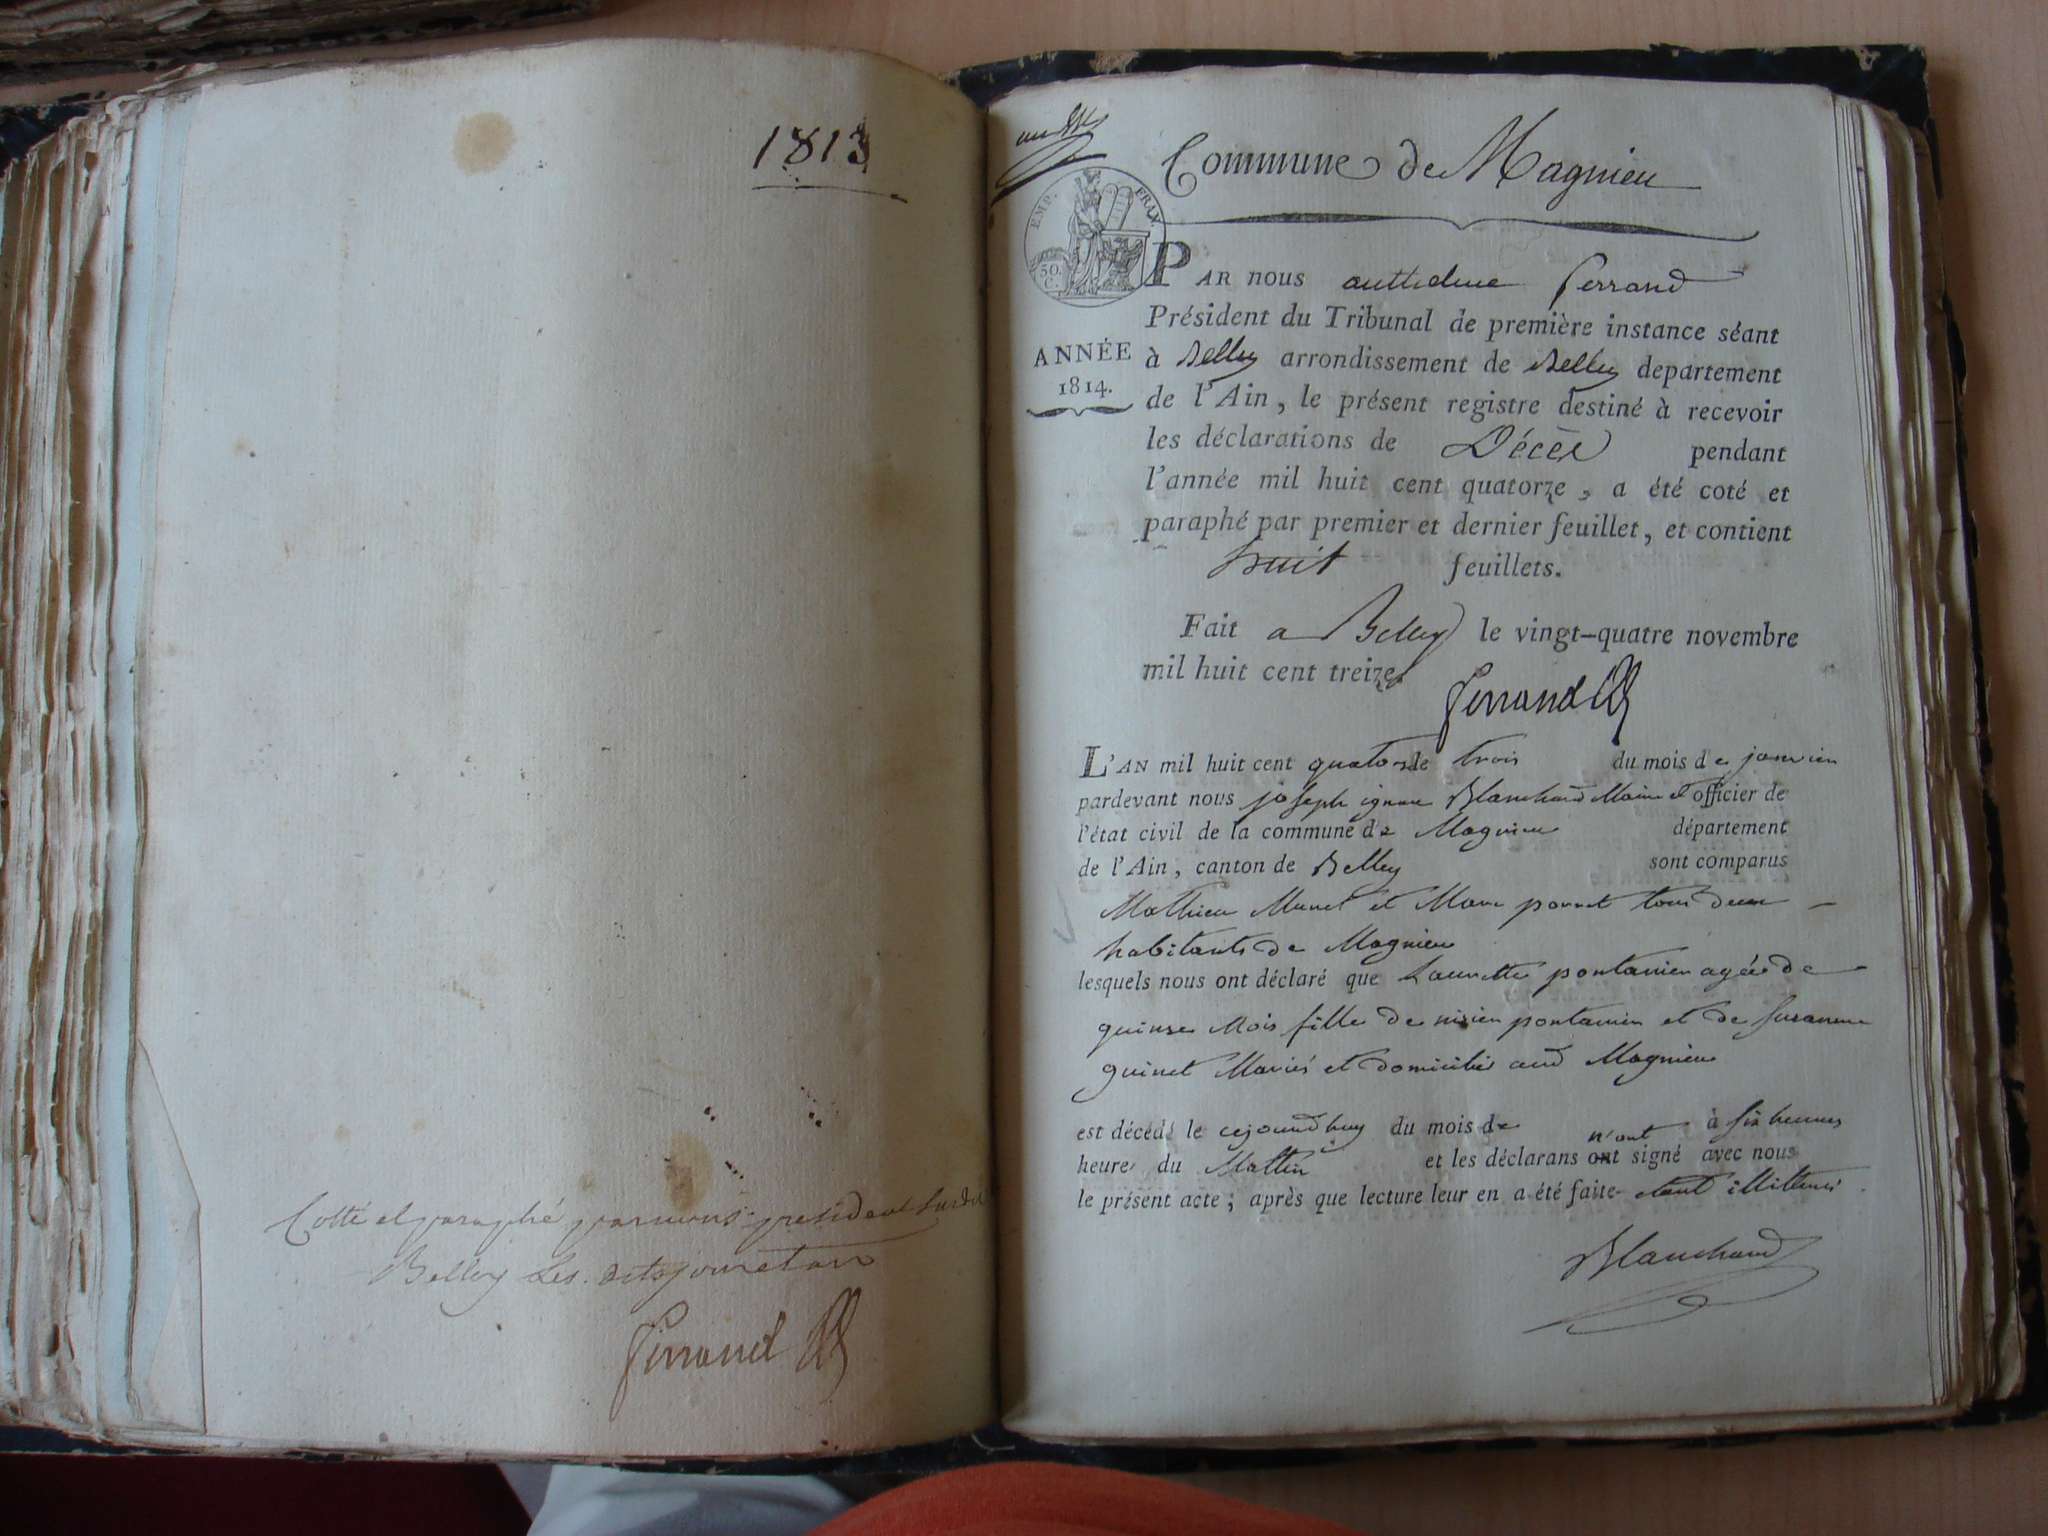 1813
Cotté et paraphé par nous président susdit
Belley les dits jour et an
Ferrand
Commune de Magnieu
EMP. FRAN.
30. C.
ANNÉE
1814.
PAR nous anthelme Ferrand
Président du Tribunal de première instance séant
à Belley arrondissement de Belley departement
de l'Ain, le présent registre destiné à recevoir
les déclarations de Décès pendant
l'année mil huit cent quatorze, a été coté et
paraphé par premier et dernier feuillet, et contient
huit feuillets.
Fait a Belley le vingt-quatre novembre
mil huit cent treize.
Ferrand
L'AN mil huit cent quatorze trois du mois de janvier
pardevant nous joseph ignace Blanchard Maire et officier de
l'état civil de la commune de Magnieu département
de l'Ain, canton de Belley sont comparus
Mathieu Munet et Marc porret tous deux
habitants de Magnieu
lesquels nous ont déclaré que Laurette pontanier agée de
quinse Mois fille de nizier pontanier et de Susanne
guinet Mariés et domiciliés aud Magnieu
est décédé le cejourdhuy du mois de à six heures
heure du Mattin et les déclarans n'ont signé avec nous
le présent acte; après que lecture leur en a été faite étant illitérés
Blanchard